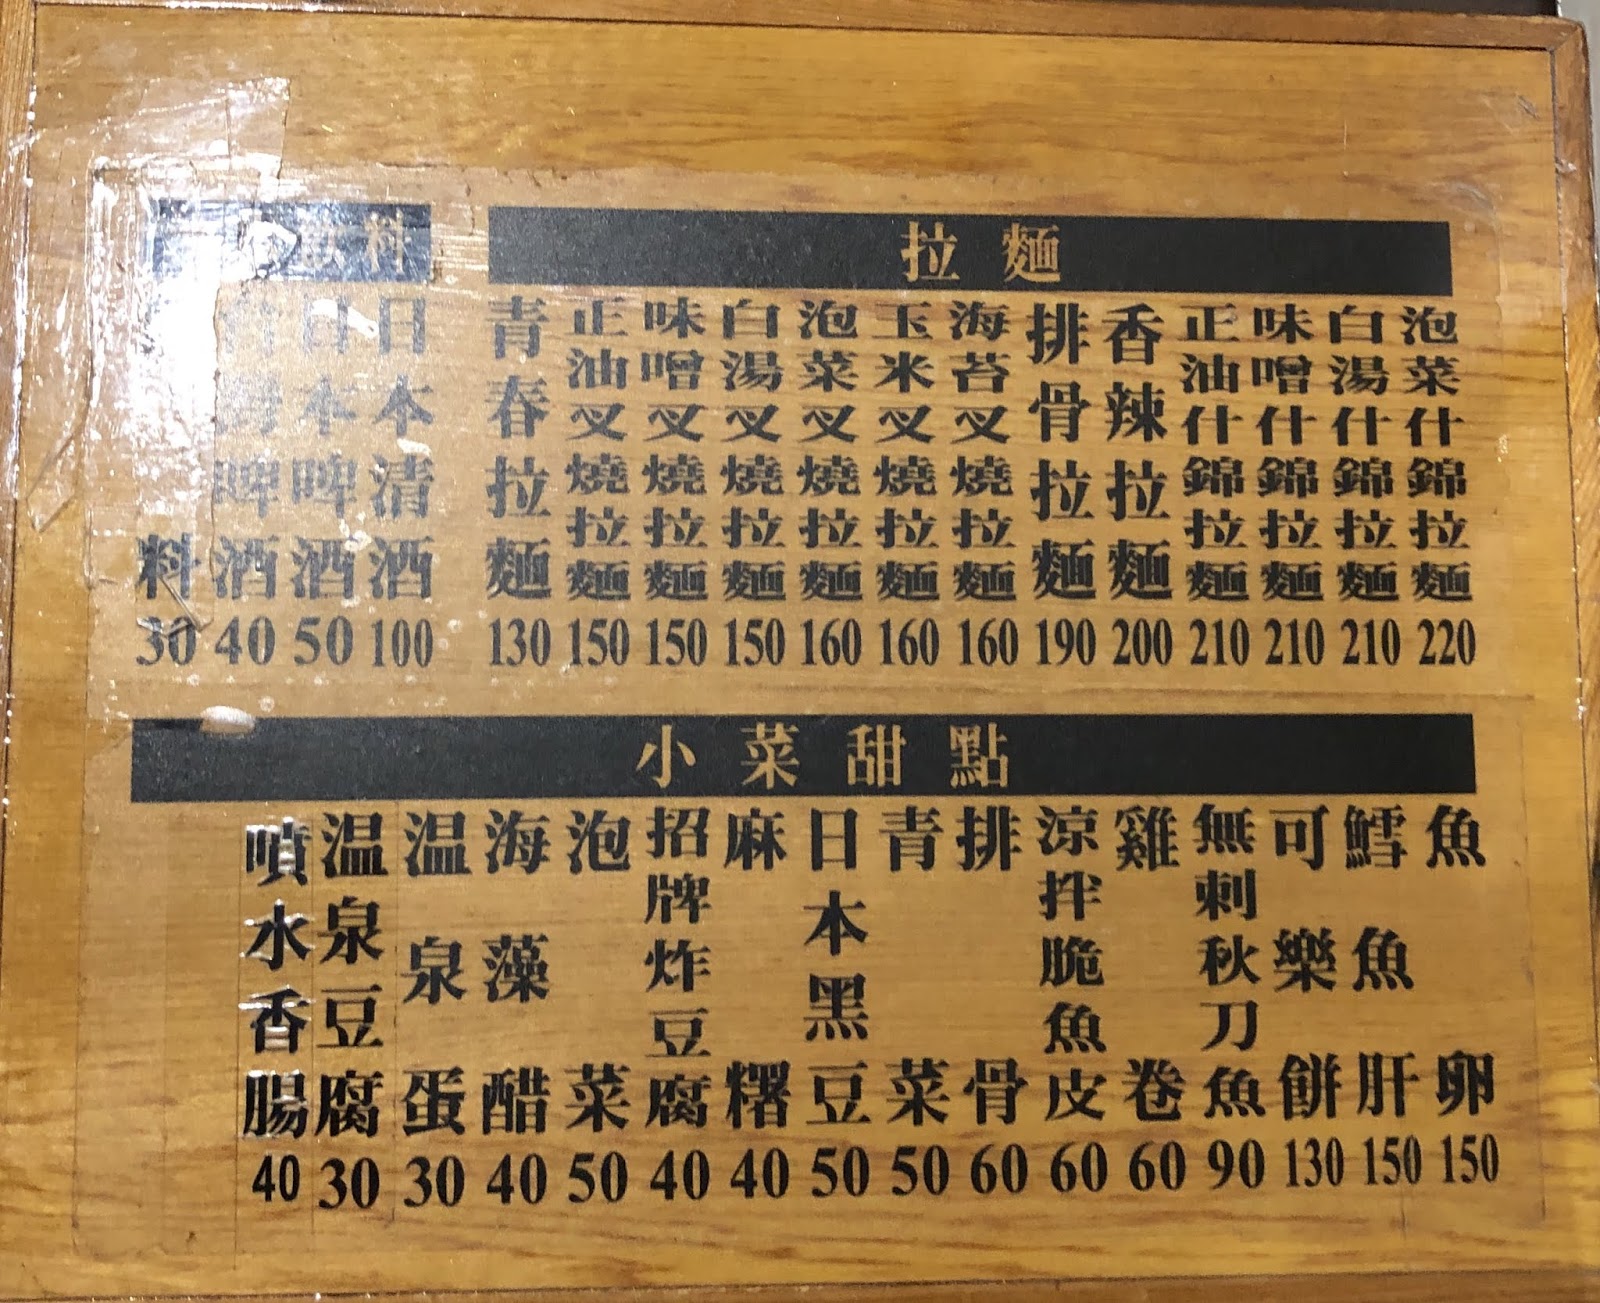 飲料
料 30
啤酒 40
日本啤酒 50
日本清酒 100
拉麵
青春拉麵 130
正油叉燒拉麵 150
味噌叉燒拉麵 150
白湯叉燒拉麵 150
泡菜叉燒拉麵 160
玉米叉燒拉麵 160
海苔叉燒拉麵 160
排骨拉麵 190
香辣拉麵 200
正油什錦拉麵 210
味噌什錦拉麵 210
白湯什錦拉麵 210
泡菜什錦拉麵 220
小菜甜點
噴水香腸 40
温泉豆腐 30
温泉蛋 30
海藻醋 40
泡菜 50
招牌炸豆腐 40
麻糬 40
日本黑豆 50
青菜 50
排骨 60
涼拌脆魚皮 60
雞卷 60
無刺秋刀魚 90
可樂餅 130
鱈魚肝 150
魚卵 150